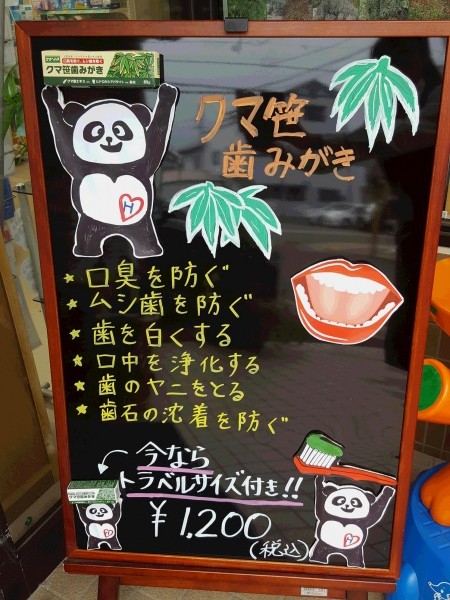 クマ笹歯みがき
クマ笹
歯みがき
H
★口臭を防ぐ
★ムシ歯を防ぐ
★歯を白くする
★口中を浄化する
★歯のヤニをとる
★歯石の沈着を防ぐ
今なら
トラベルサイズ付き!!
クマ笹歯みがき
￥1,200
(税込)